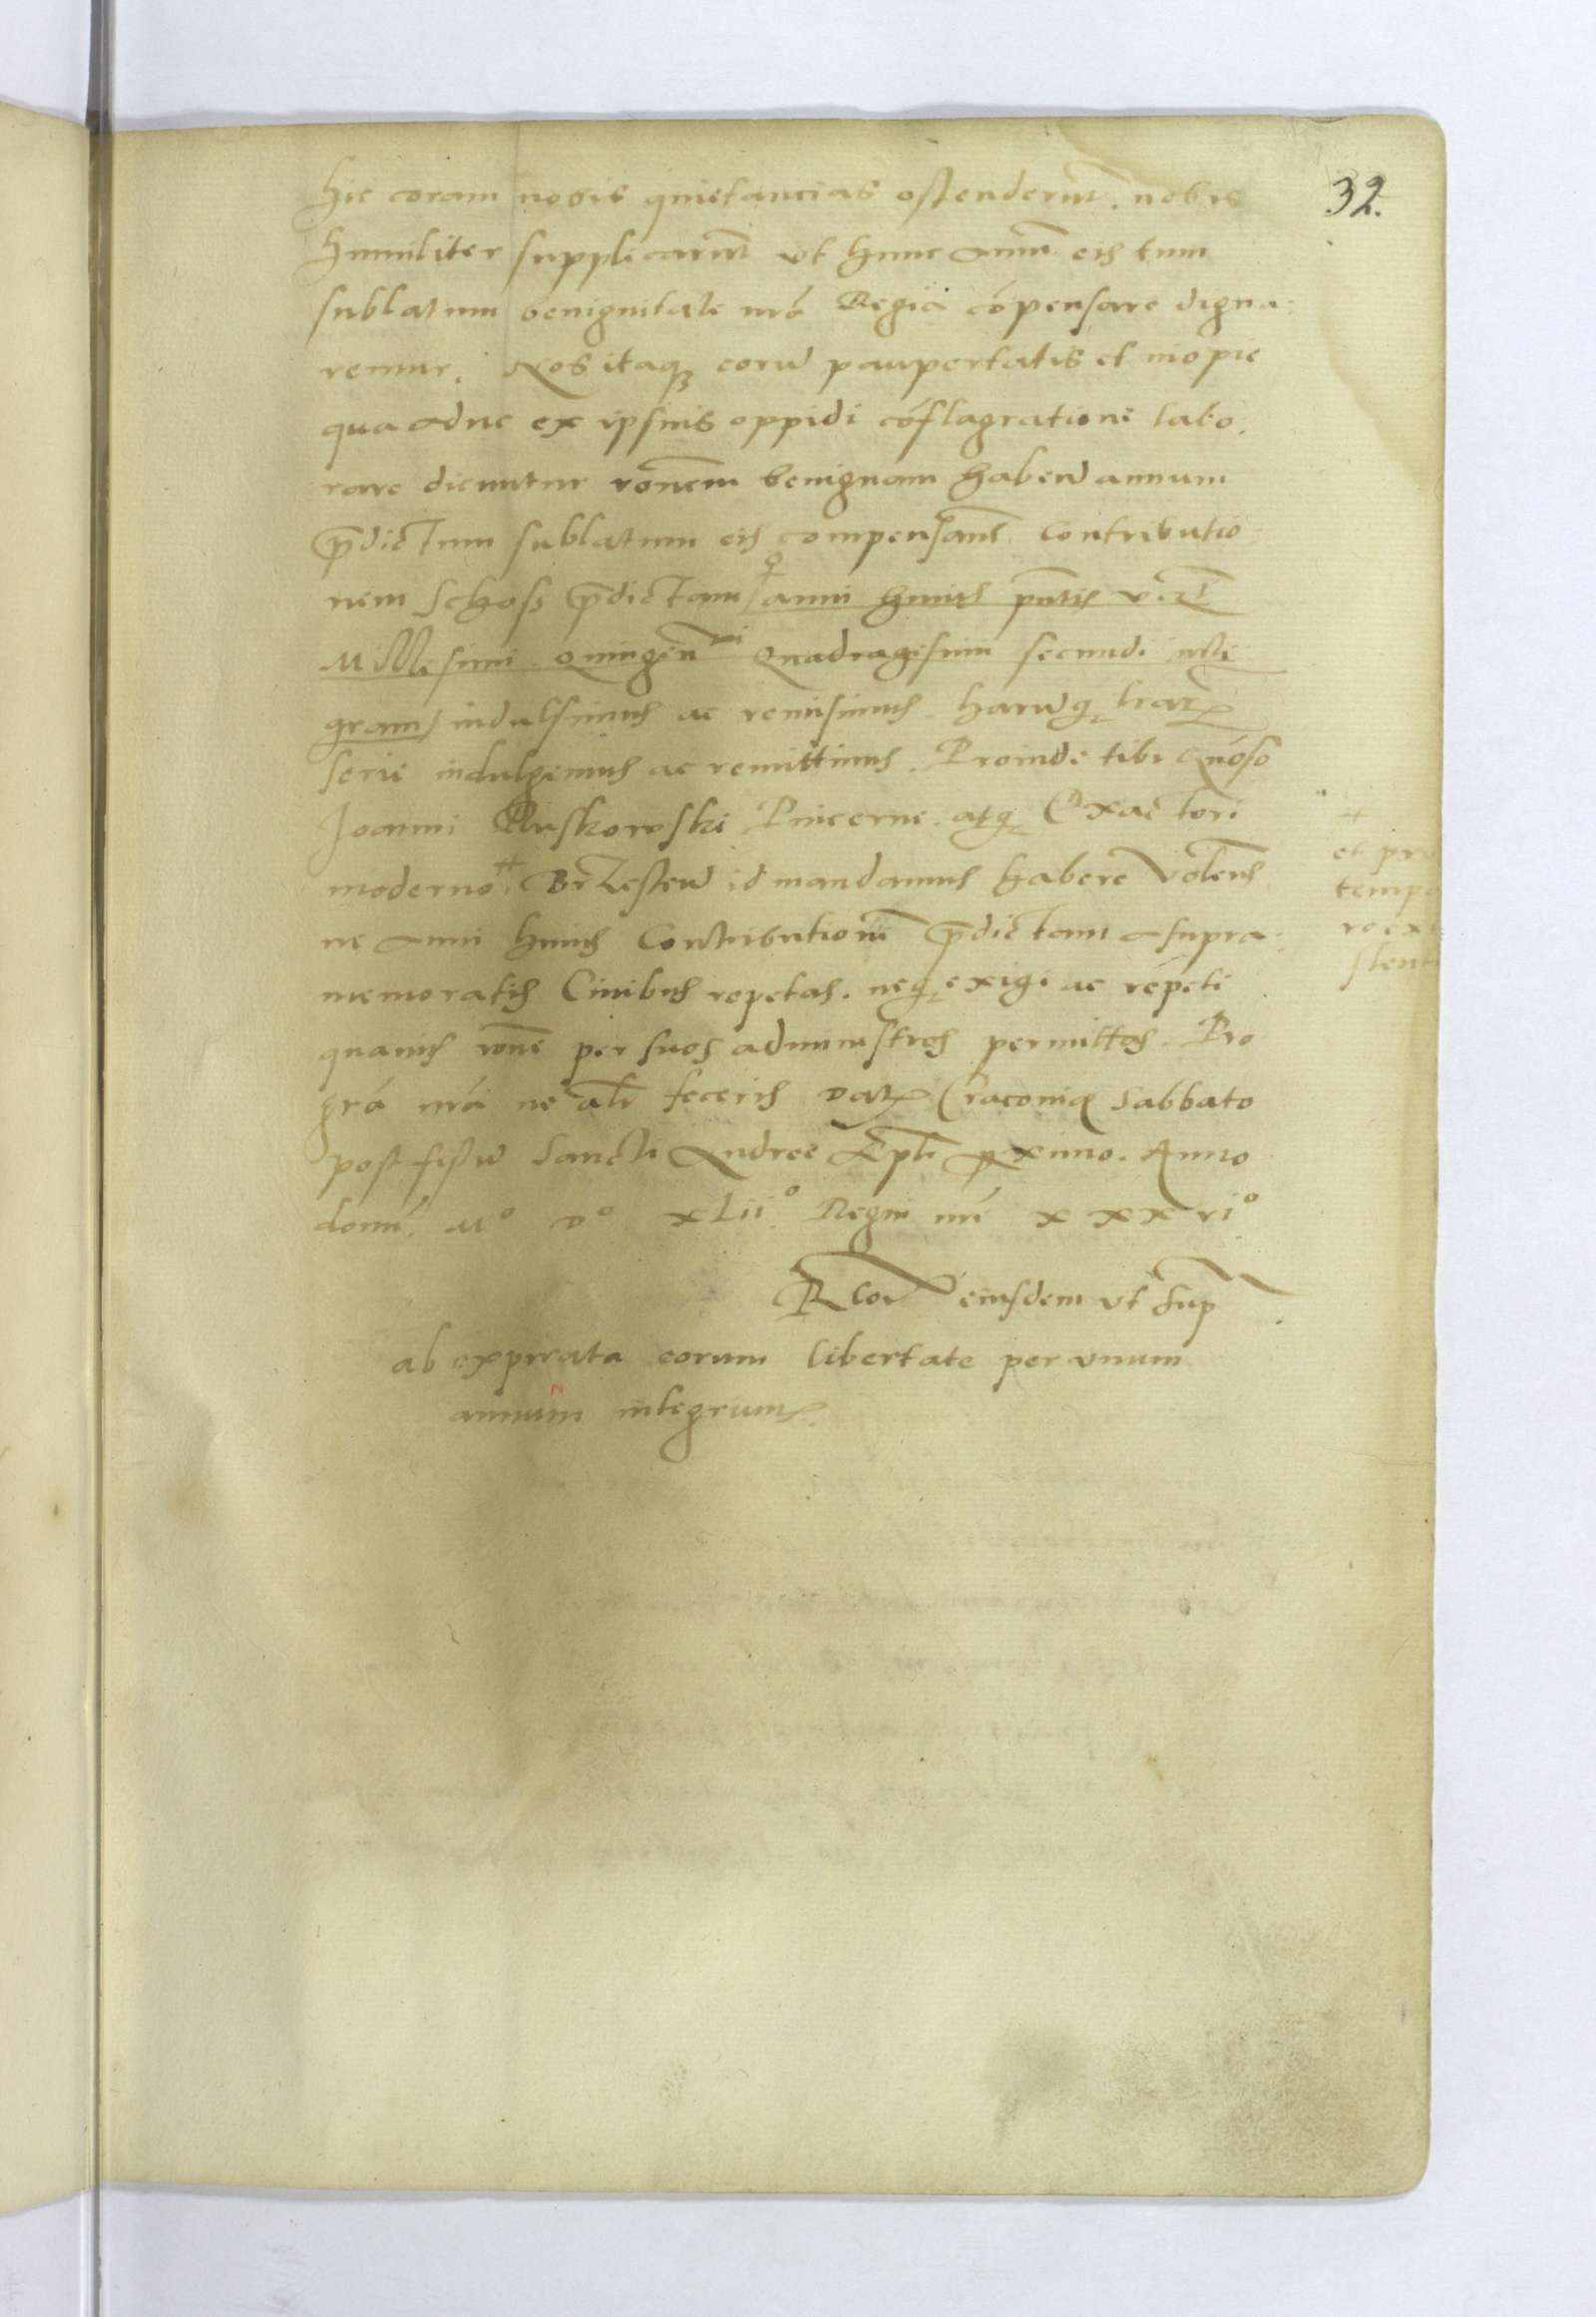 32.
hic coram nobis quietancias ostenderūt. nobis
humiliter supplicarūt ut hunc annū eis tum
sublatum benignitate nrā Regia cōpensare digna-
remur. Nos itaqȝ eorū paupertatis et inopie
qua adhuc ex ipsius oppidi cōflagratione labo-
rare dicuntur rōnem benignam habend annum
p̄dictum sublatum eis compensan̄. Contributio
nem Schoss p̄dictam / anni huius pn̄tis vȝ
Millesimi Quingenᵗⁱ Quadragesimi secundi inte
gram / indulsimus ac remisimus. harūqȝ lrarȝ
serie indulgemus ac remittimus. Proinde tibi Gnōso
Joanni Pincerne atqȝ Exactori
moderno # Brzesteñ id mandamus habere volens
ne anni huius Contributionē p̄dictam a supra-
memoratis Civibus repetas. neqȝ exigi ac repeti
quavis rōne per suos administros permittas. Pro
grā nrā ne alr feceris Datȝ Cracovię Sabbato
post festū Sancti Andree Apli pximo. Anno
domi. Mº Dº xLiiº. Regni nri xxxviº
#
et pro
tempo
re exi
stent
Rcō eiusdem ut sup
ab expirata eorum libertate per unum
annum integrum